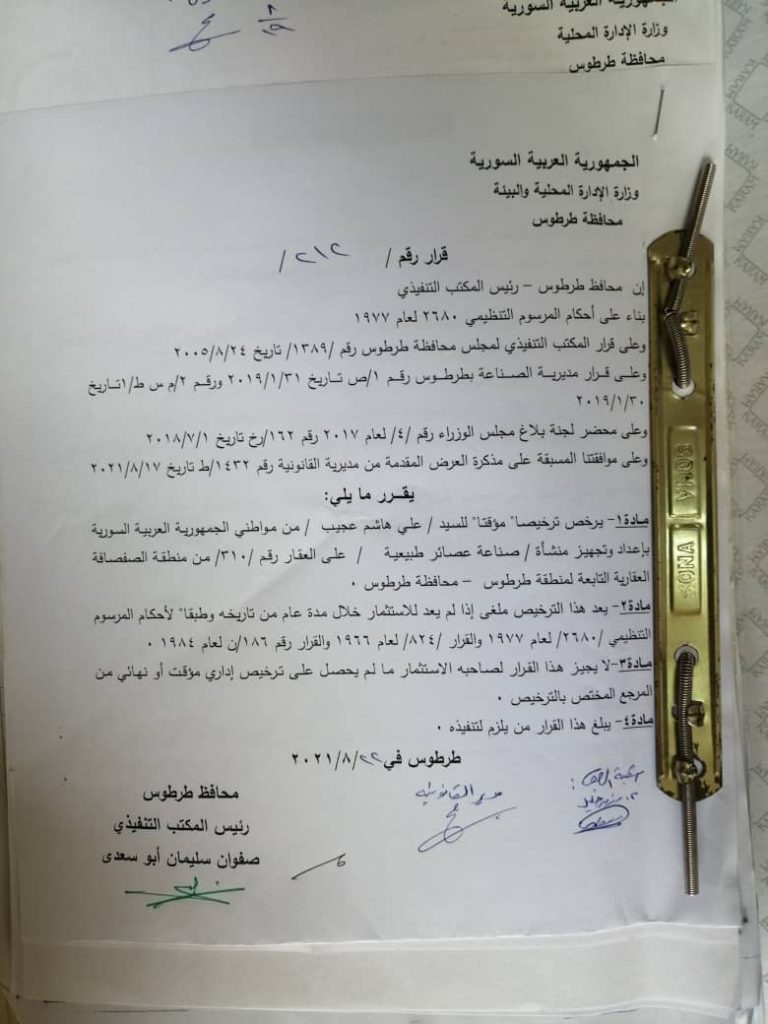 الجمهورية العربية السورية
وزارة الإدارة المحلية
محافظة طرطوس
الجمهورية العربية السورية
وزارة الإدارة المحلية والبيئة
محافظة طرطوس
قرار رقم / ٢١٢ /
إن محافظ طرطوس – رئيس المكتب التنفيذي
بناء على أحكام المرسوم التنظيمي ٢٦٨٠ لعام ١٩٧٧
وعلى قرار المكتب التنفيذي لمجلس محافظة طرطوس رقم /١٣٨٩/ تاريخ ٢٠٠٥/٨/٢٤
وعلى قرار مديرية الصناعة بطرطوس رقم ١/ص تاريخ ٢٠١٩/١/٣١ ورقم ٢/م س ط/١تاريخ
٢٠١٩/١/٣٠
وعلى محضر لجنة بلاغ مجلس الوزراء رقم /٤/ لعام ٢٠١٧ رقم ١٦٢/رخ تاريخ ٢٠١٨/٧/١
وعلى موافقتنا المسبقة على مذكرة العرض المقدمة من مديرية القانونية رقم ١٤٣٢/ط تاريخ ٢٠٢١/٨/١٧
يقــرر ما يلي:
مادة١- يرخص ترخيصا" مؤقتا" للسيد / علي هاشم عجيب / من مواطني الجمهورية العربية السورية
بإعداد وتجهيز منشأة / صناعة عصائر طبيعية / على العقار رقم /٣١٠/ من منطقة الصفصافة
العقارية التابعة لمنطقة طرطوس – محافظة طرطوس ٠
مادة٢- يعد هذا الترخيص ملغى إذا لم يعد للاستثمار خلال مدة عام من تاريخه وطبقا" لأحكام المرسوم
التنظيمي /٢٦٨٠/ لعام ١٩٧٧ والقرار /٨٢٤/ لعام ١٩٦٦ والقرار رقم ١٨٦/ن لعام ١٩٨٤ ٠
مادة٣-لا يجيز هذا القرار لصاحبه الاستثمار ما لم يحصل على ترخيص إداري مؤقت أو نهائي من
المرجع المختص بالترخيص ٠
مادة٤- يبلغ هذا القرار من يلزم لتنفيذه ٠
طرطوس في ٢٠٢١/٨/٢٢
مدير القانونية
محافظ طرطوس
رئيس المكتب التنفيذي
صفوان سليمان أبو سعدى
SOHA
SONA
KARAM